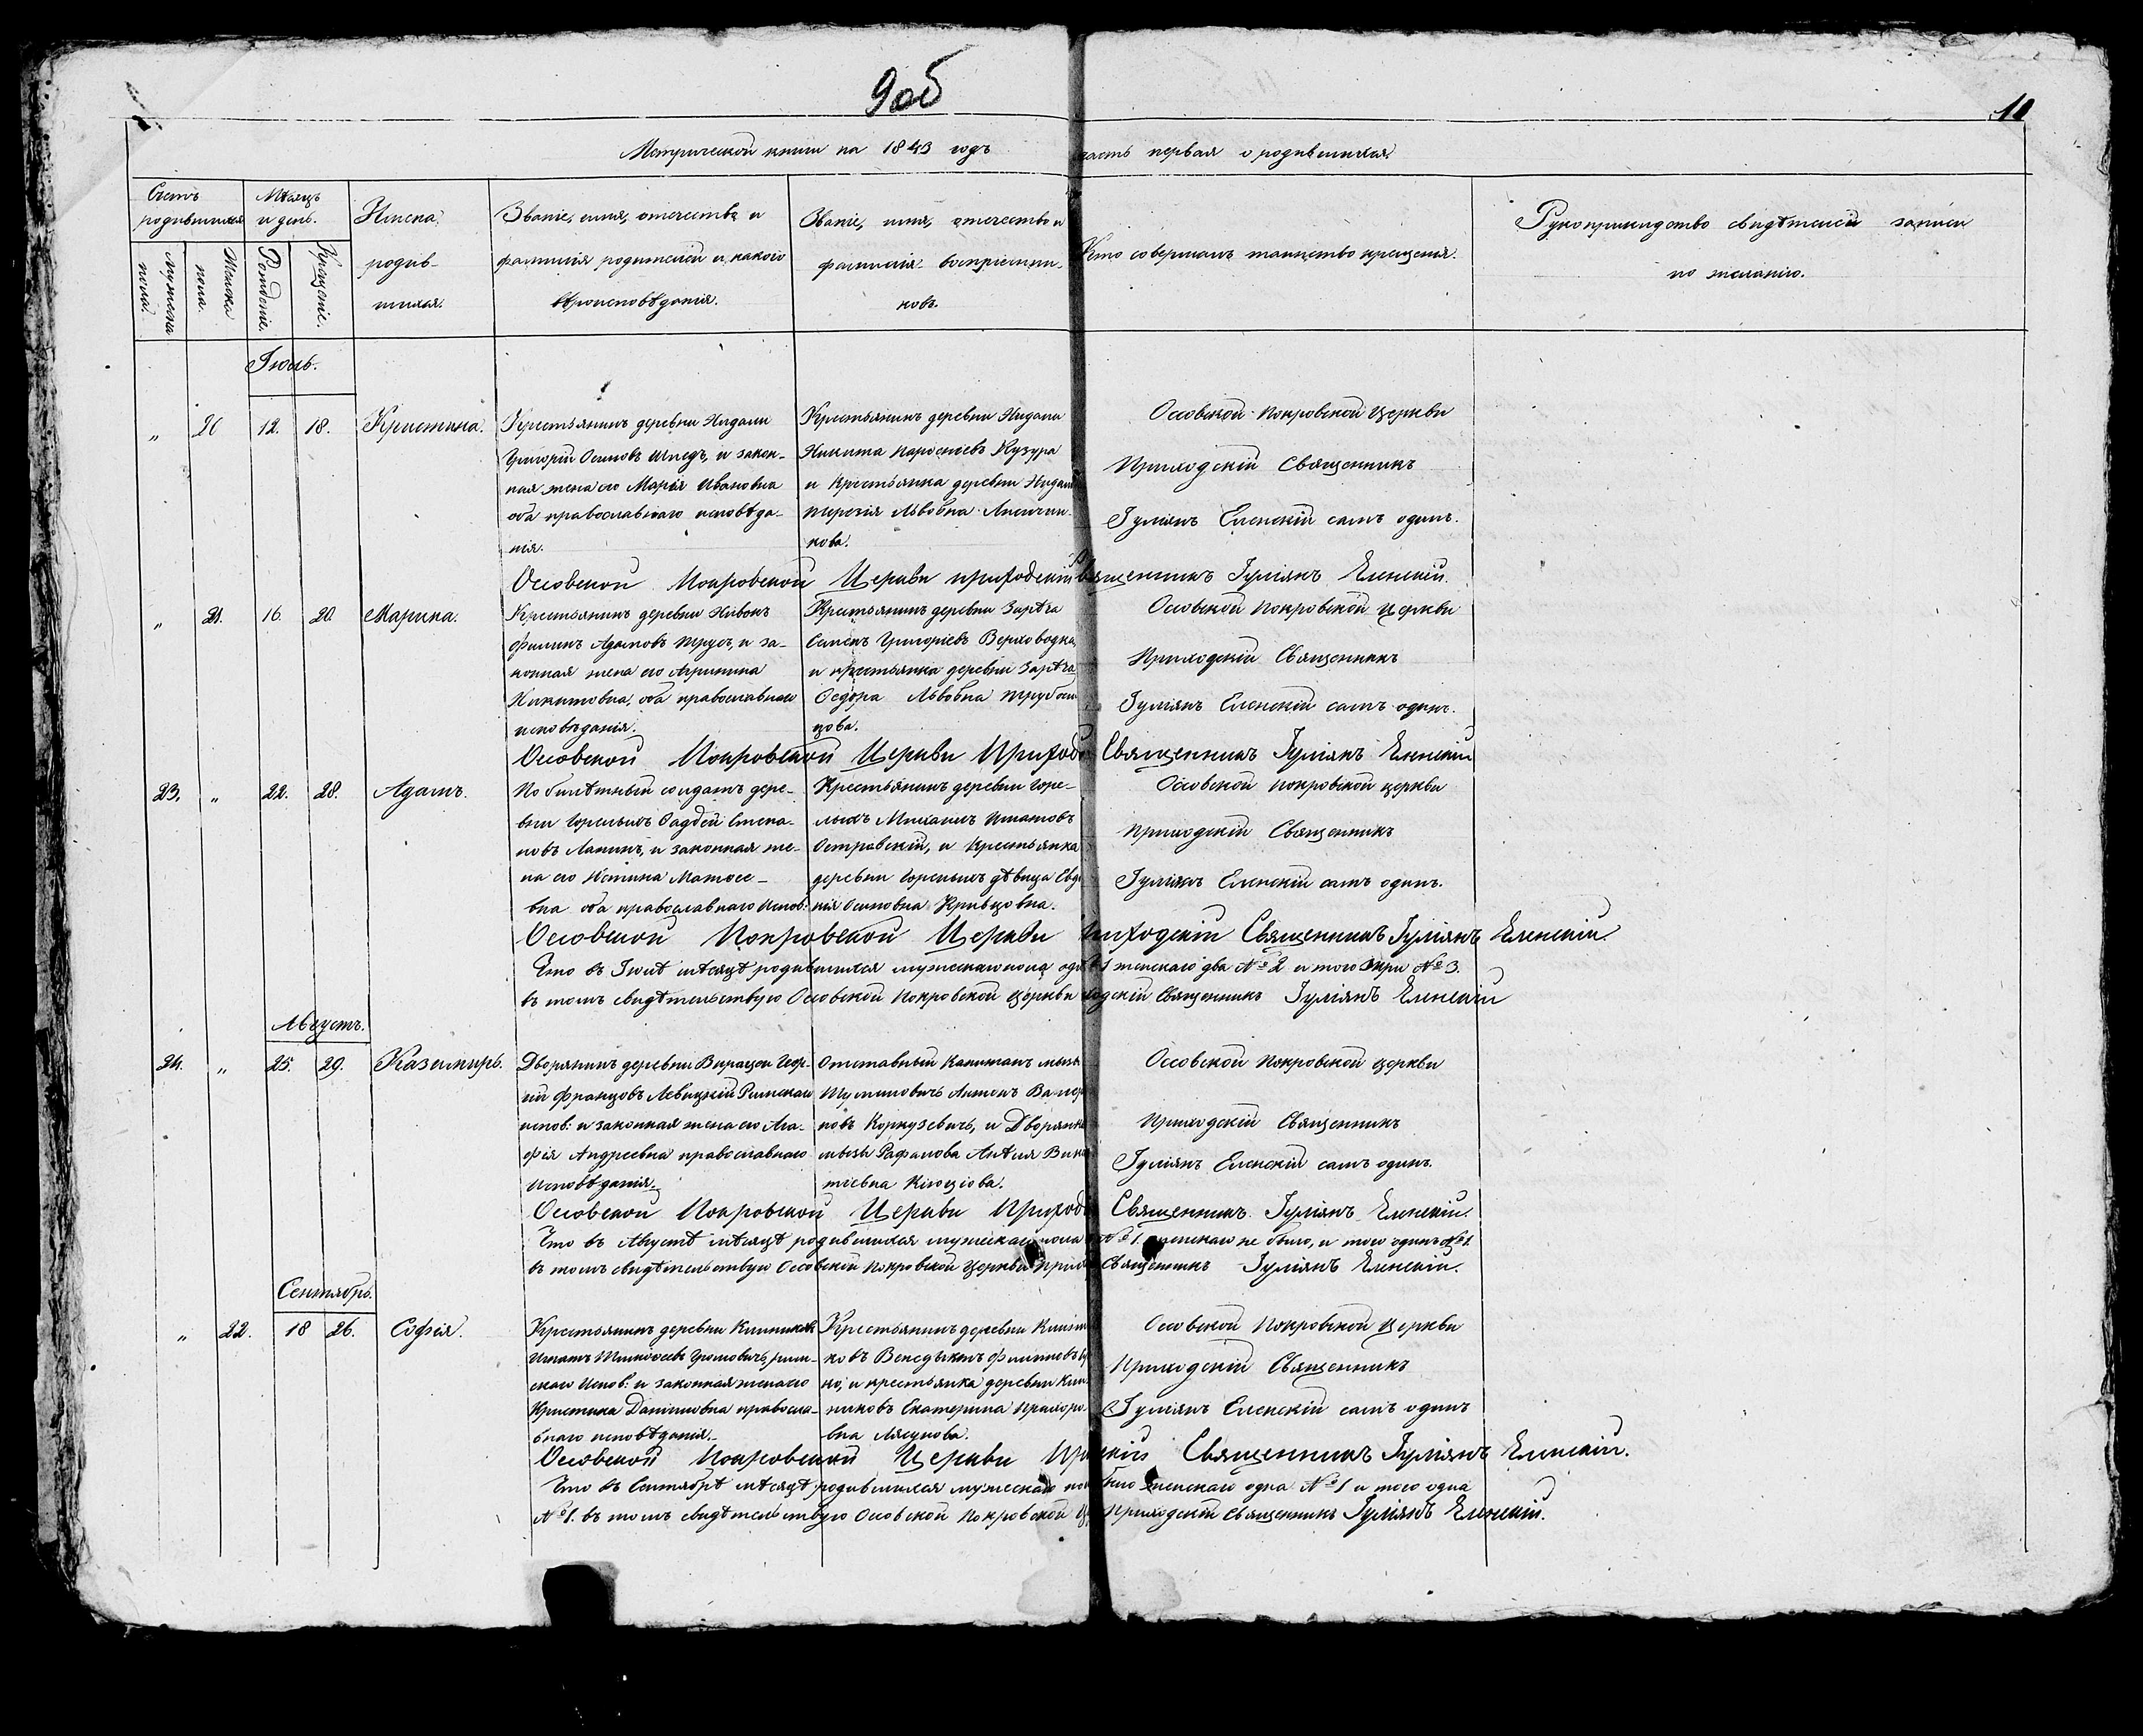 9об
10
Метрической книги на 1843 годъ часть первая о родившихся.
Счетъ родившихся
Мѣсяцъ и день.
Имена родив-
шихся.
Званіе, имя, отечество и
фамилія родителей и какого
вѣроисповѣданія.
Званіе, имя, отечество и
фамилія воспріемни-
ковъ.
Кто совершалъ таинство крещенія.
Рукоприкладство свидѣтелей записи
по желанію.
Мужеска пола.
Женска пола.
Рожденіе.
Крещеніе.
Іюль.
„ 20 12. 18. Христина.
Крестьянинъ деревни
Григорій Осиповъ Шпедъ, и закон-
ная жена его Марія Ивановна
оба православнаго исповѣда-
нія.
Крестьянинъ деревни
Никита Парѳеніевъ Кузура
и крестьянка деревни
Терезія Львовна
кова.
Оссовской Покровской Церкви
Приходскій Священникъ
Іуліянъ Еленскій самъ одинъ.
Оссовской Покровской Церкви приходскій Священникъ Іуліянъ Еленскій.
„ 21. 16. 20. Марина.
Крестьянинъ деревни
Филипъ Адамовъ Трусъ, и за-
конная жена его Агрипина
Никитовна, оба православнаго
исповѣданія.
Крестьянинъ деревни Зарѣча
Семенъ Григоріевъ Верховодка,
и крестьянка деревни Зарѣча
Ѳедора Львовна
цова.
Оссовской Покровской Церкви
Приходскій Священникъ
Іуліянъ Еленскій самъ одинъ.
Оссовской Покровской Церкви Приход Священникъ Іуліянъ Еленскій
23. „ 22. 28. Адамъ.
По билѣтный солдатъ дере-
вни Горелыхъ Фаддей Степа-
новъ Лапинъ, и законная же-
на его Устина Матѳее-
вна оба православнаго испов:
Крестьянинъ деревни Горе-
лыхъ Михаилъ Игнатовъ
Островскій, и крестьянка
деревни Горелыхъ дѣвица Евдо
кія Осиповна Кривцовна.
Оссовской Покровской церкви
Приходскій Священникъ
Іуліянъ Еленскій самъ одинъ.
Оссовской Покровской Церкви Приходскій Священникъ Іуліянъ Еленскій.
Что въ Іюлѣ мѣсяцѣ родившихся мужескаго пола одинъ 1 женскаго два №2 и того три №3.
въ томъ свидѣтельствую Оссовской Покровской церкви ходскій Священникъ Іуліянъ Еленскій
Августъ.
24. „ 25. 29. Каземиръ.
Дворянинъ деревни
Францовъ Левицкій Римскаго
испов: и законная жена его Ага-
фія Андреевна православнаго
исповѣданія.
Отставный Капитанъ мызы
Антонъ
новъ Коркузевичъ, и Дворянка
мызы Рафалова Анѣля Викен
тіевна
Оссовской Покровской церкви
Приходскій Священникъ
Іуліянъ Еленскій самъ одинъ.
Оссовской Покровской Церкви Приход Священникъ Іуліянъ Еленскій.
Что въ Августѣ мѣсяцѣ родившихся мужескаго пола №1. женскаго не было, и того одинъ №1.
въ томъ свидѣтельствую Оссовской Покровской Церкви Приход Священникъ Іуліянъ Еленскій.
Сентябрь.
„ 22. 18 26. Софія.
Крестьянинъ деревни Клинниковъ
Игнатъ Тимоѳеевъ Громовичъ, рим-
скаго испов: и законная жена его
Христина Даниловна правосла-
внаго исповѣданія.
Крестьянинъ деревни Клин
ковъ Венедыктъ Филиповъ
ко, и крестьянка деревни Клин
никовъ Екатерина Прохоро-
вна Лясунова.
Оссовской Покровской Церкви
Приходскій Священникъ
Іуліянъ Еленскій самъ одинъ
Оссовской Покровской Церкви Приходскій Священникъ Іуліянъ Еленскій.
Что въ Сентябрѣ мѣсяцѣ родившихся мужескаго пола было женскаго одна №1 и того одна
№1. въ томъ свидѣтельствую Оссовской Покровской Ц Приходскій Священникъ Іуліянъ Еленскій.